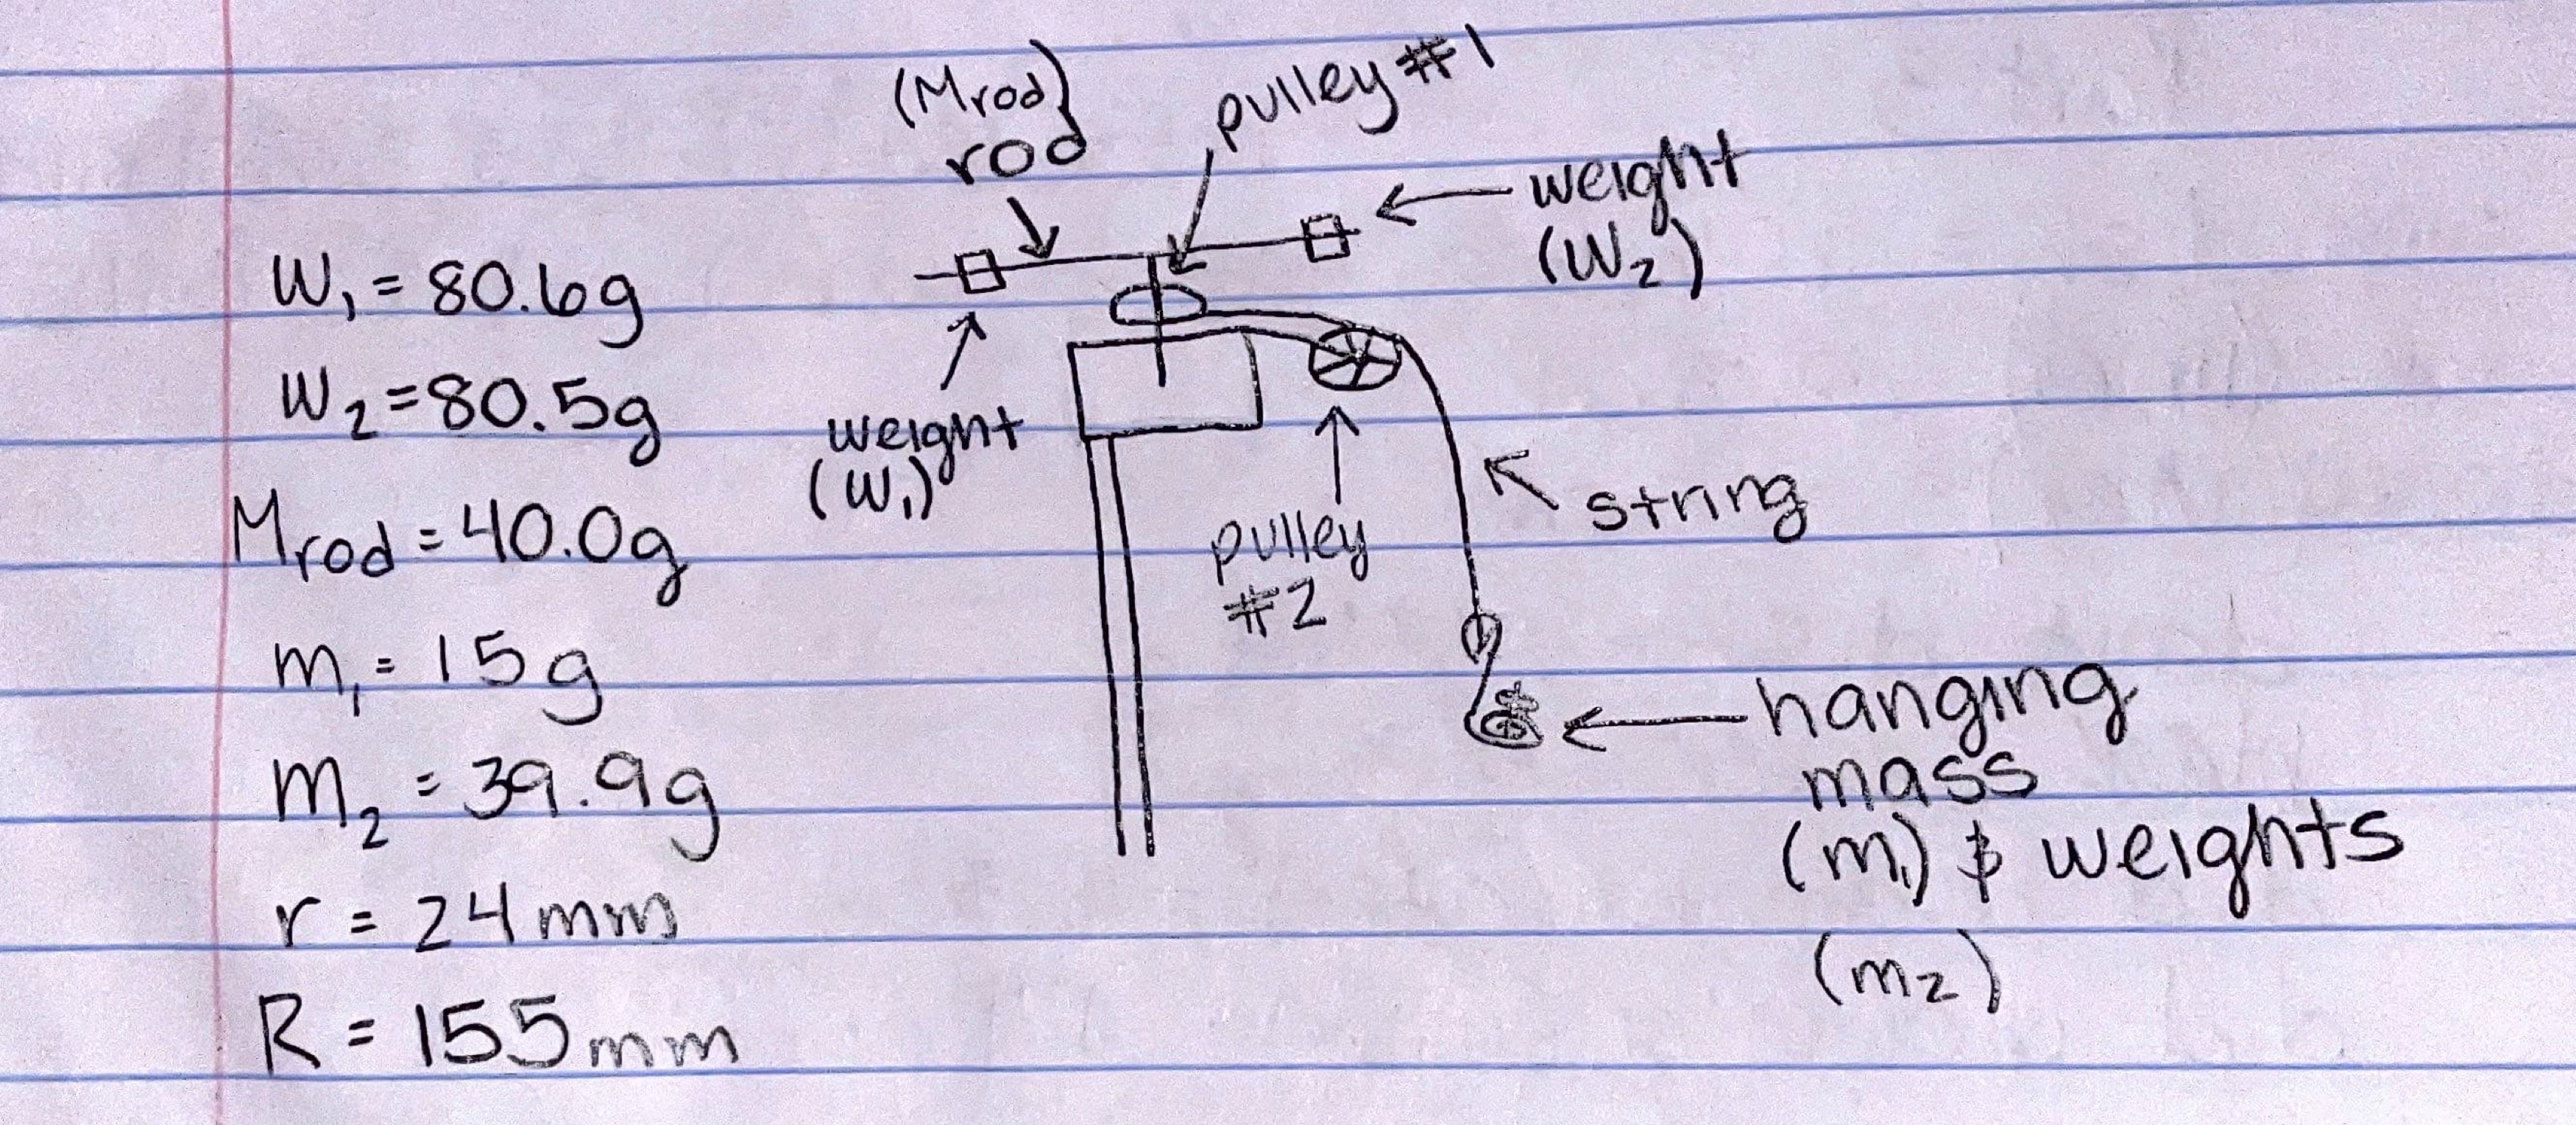 W₁ = 80.6g
W₂ = 80.5g
Mrod = 40.0g
m₁ = 15g
m₂ = 39.9g
r = 24mm
R = 155mm
(Mrod)
rod
pulley #1
weight
(W₂)
weight
(W₁)
pulley
#2
string
hanging
mass
(m₁) & weights
(m₂)